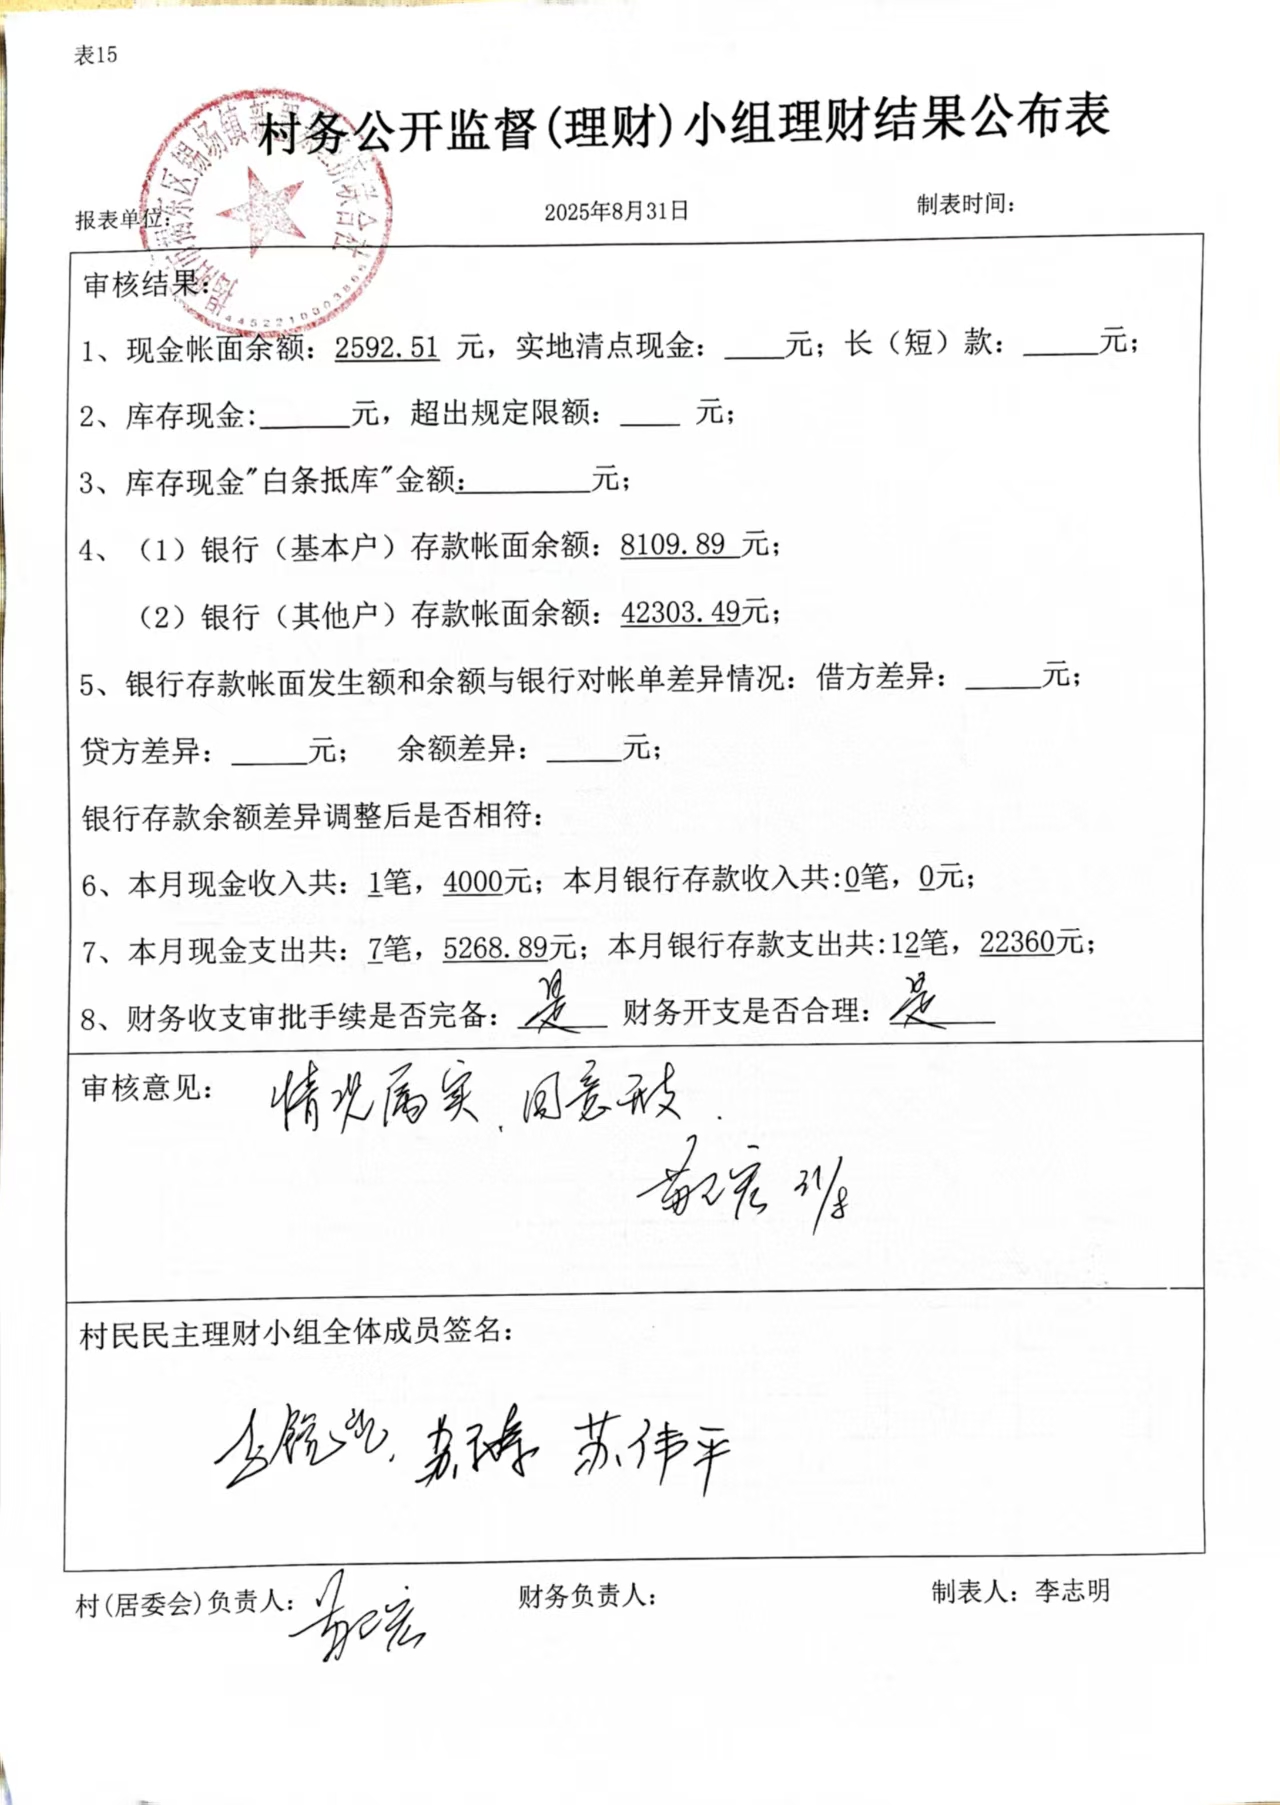 表15
村务公开监督(理财)小组理财结果公布表
报表单位: 2025年8月31日 制表时间:
审核结果:
1、现金帐面余额: 2592.51 元，实地清点现金: ____元；长（短）款: _____元；
2、库存现金:______元，超出规定限额: ____ 元；
3、库存现金"白条抵库"金额:________元；
4、（1）银行（基本户）存款帐面余额: 8109.89 元；
（2）银行（其他户）存款帐面余额: 42303.49元；
5、银行存款帐面发生额和余额与银行对帐单差异情况: 借方差异: _____元；
贷方差异: _____元； 余额差异: _____元；
银行存款余额差异调整后是否相符:
6、本月现金收入共: 1笔，4000元；本月银行存款收入共:0笔，0元；
7、本月现金支出共: 7笔，5268.89元；本月银行存款支出共:12笔，22360元；
8、财务收支审批手续是否完备: 是 财务开支是否合理: 是
审核意见: 情况属实、同意开支.
31/8
村民民主理财小组全体成员签名:
苏伟平
村(居委会)负责人: 财务负责人: 制表人: 李志明